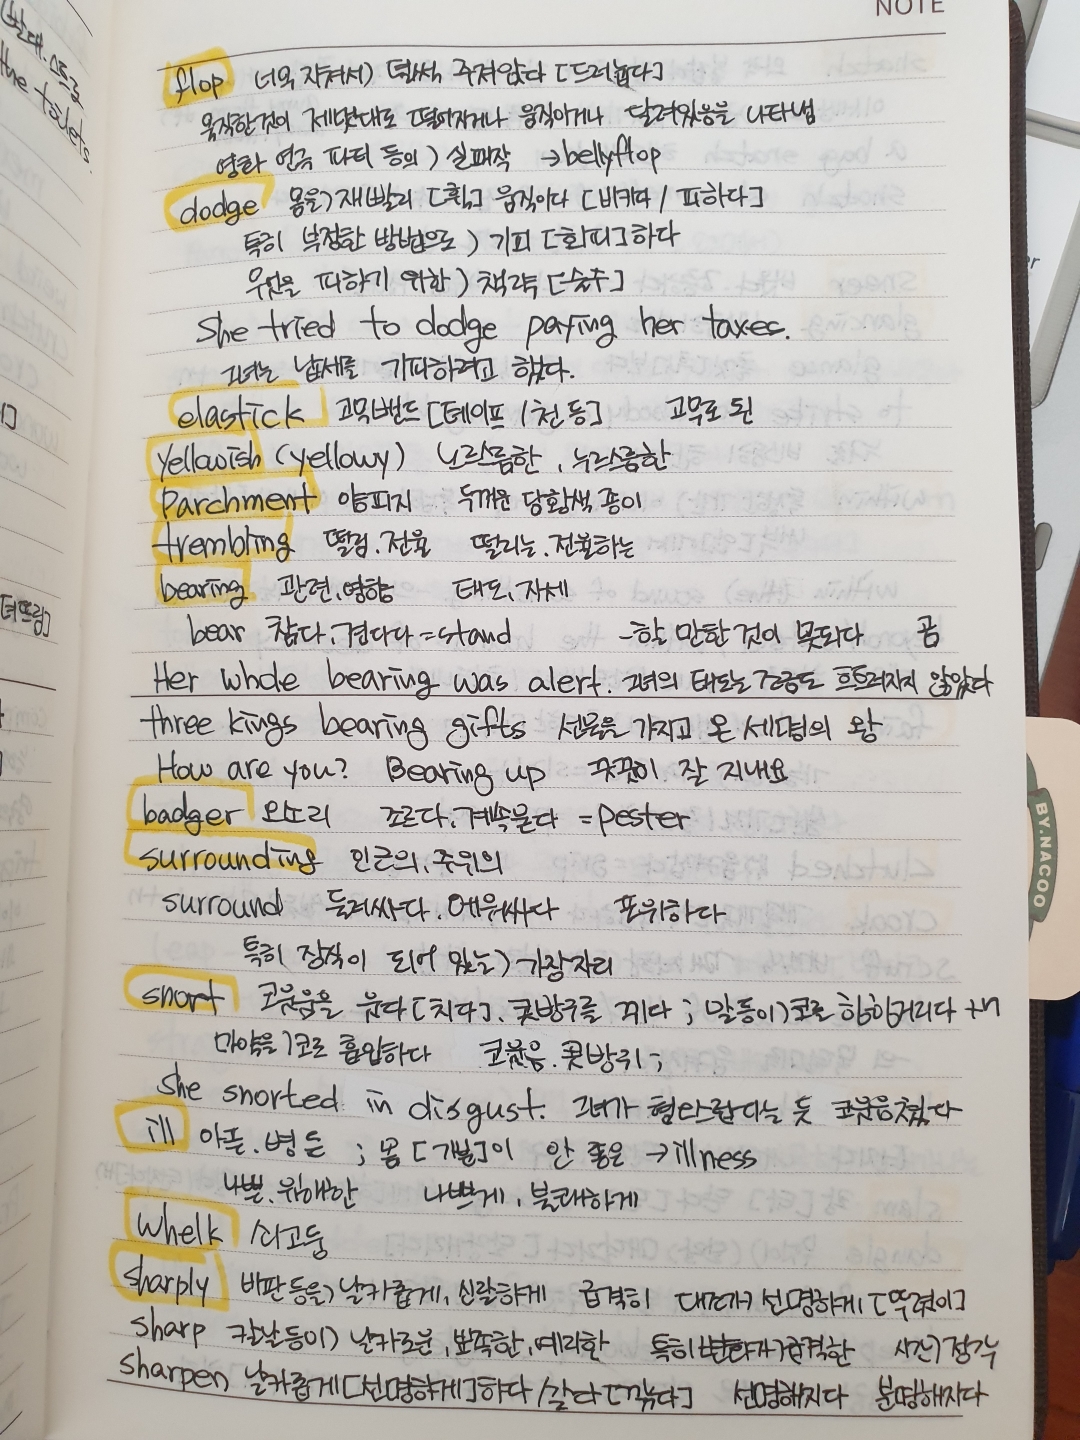 NOTE
flop 너무 지쳐서) 털썩 주저앉다 [드러눕다]
움직한것이 제멋대로 떨어지거나 움직이거나 달려있음을 나타냄
영화 연극 파티 등의) 실패작 →bellyflop
dodge 몸을) 재빨리 [휙] 움직이다 [비키다 / 피하다]
특히 부정한 방법으로) 기피 [회피]하다
무엇을 피하기 위한) 책략 [술수]
She tried to dodge paying her taxes.
그녀는 납세를 기피하려고 했다.
elastick 고무밴드 [테이프 / 천 등] 고무로 된
yellowish (yellowy) 노르스름한, 누르스름한
Parchment 양피지, 두꺼운 담황색 종이
trembling 떨림, 전율 떨리는, 전율하는
bearing 관련, 영향 태도, 자세
bear 참다, 견디다 =stand -할 만한 것이 못되다 곰
Her whole bearing was alert. 그녀의 태도는 조금도 흐트러지지 않았다
three kings bearing gifts 선물을 가지고 온 세명의 왕
How are you? Bearing up 꿋꿋이 잘 지내요
badger 오소리 조르다, 계속묻다 =pester
surrounding 인근의, 주위의
surround 둘러싸다, 에워싸다 포위하다
특히 장식이 되어 있는) 가장자리
snort 코웃음을 웃다[치다], 콧방귀를 뀌다 ; 말등이)코로 힝힝거리다 +n
마약을)코로 흡입하다 코웃음, 콧방귀;
She snorted in disgust. 그녀가 혐오스럽다는 듯 코웃음쳤다
ill 아픈, 병 든 ; 몸[기분]이 안 좋은 →illness
나쁜, 유해한 나쁘게, 불쾌하게
whelk 쇠고둥
sharply 비판 등을) 날카롭게, 신랄하게 급격히 대조가) 선명하게 [뚜렷이]
sharp 칼날 등이) 날카로운, 뾰족한, 예리한 특히 변화가)급격한 시간)정각
sharpen 날카롭게[선명하게]하다 / 갈다[깎다] 선명해지다 분명해지다
the toilets.
BY.NACOO